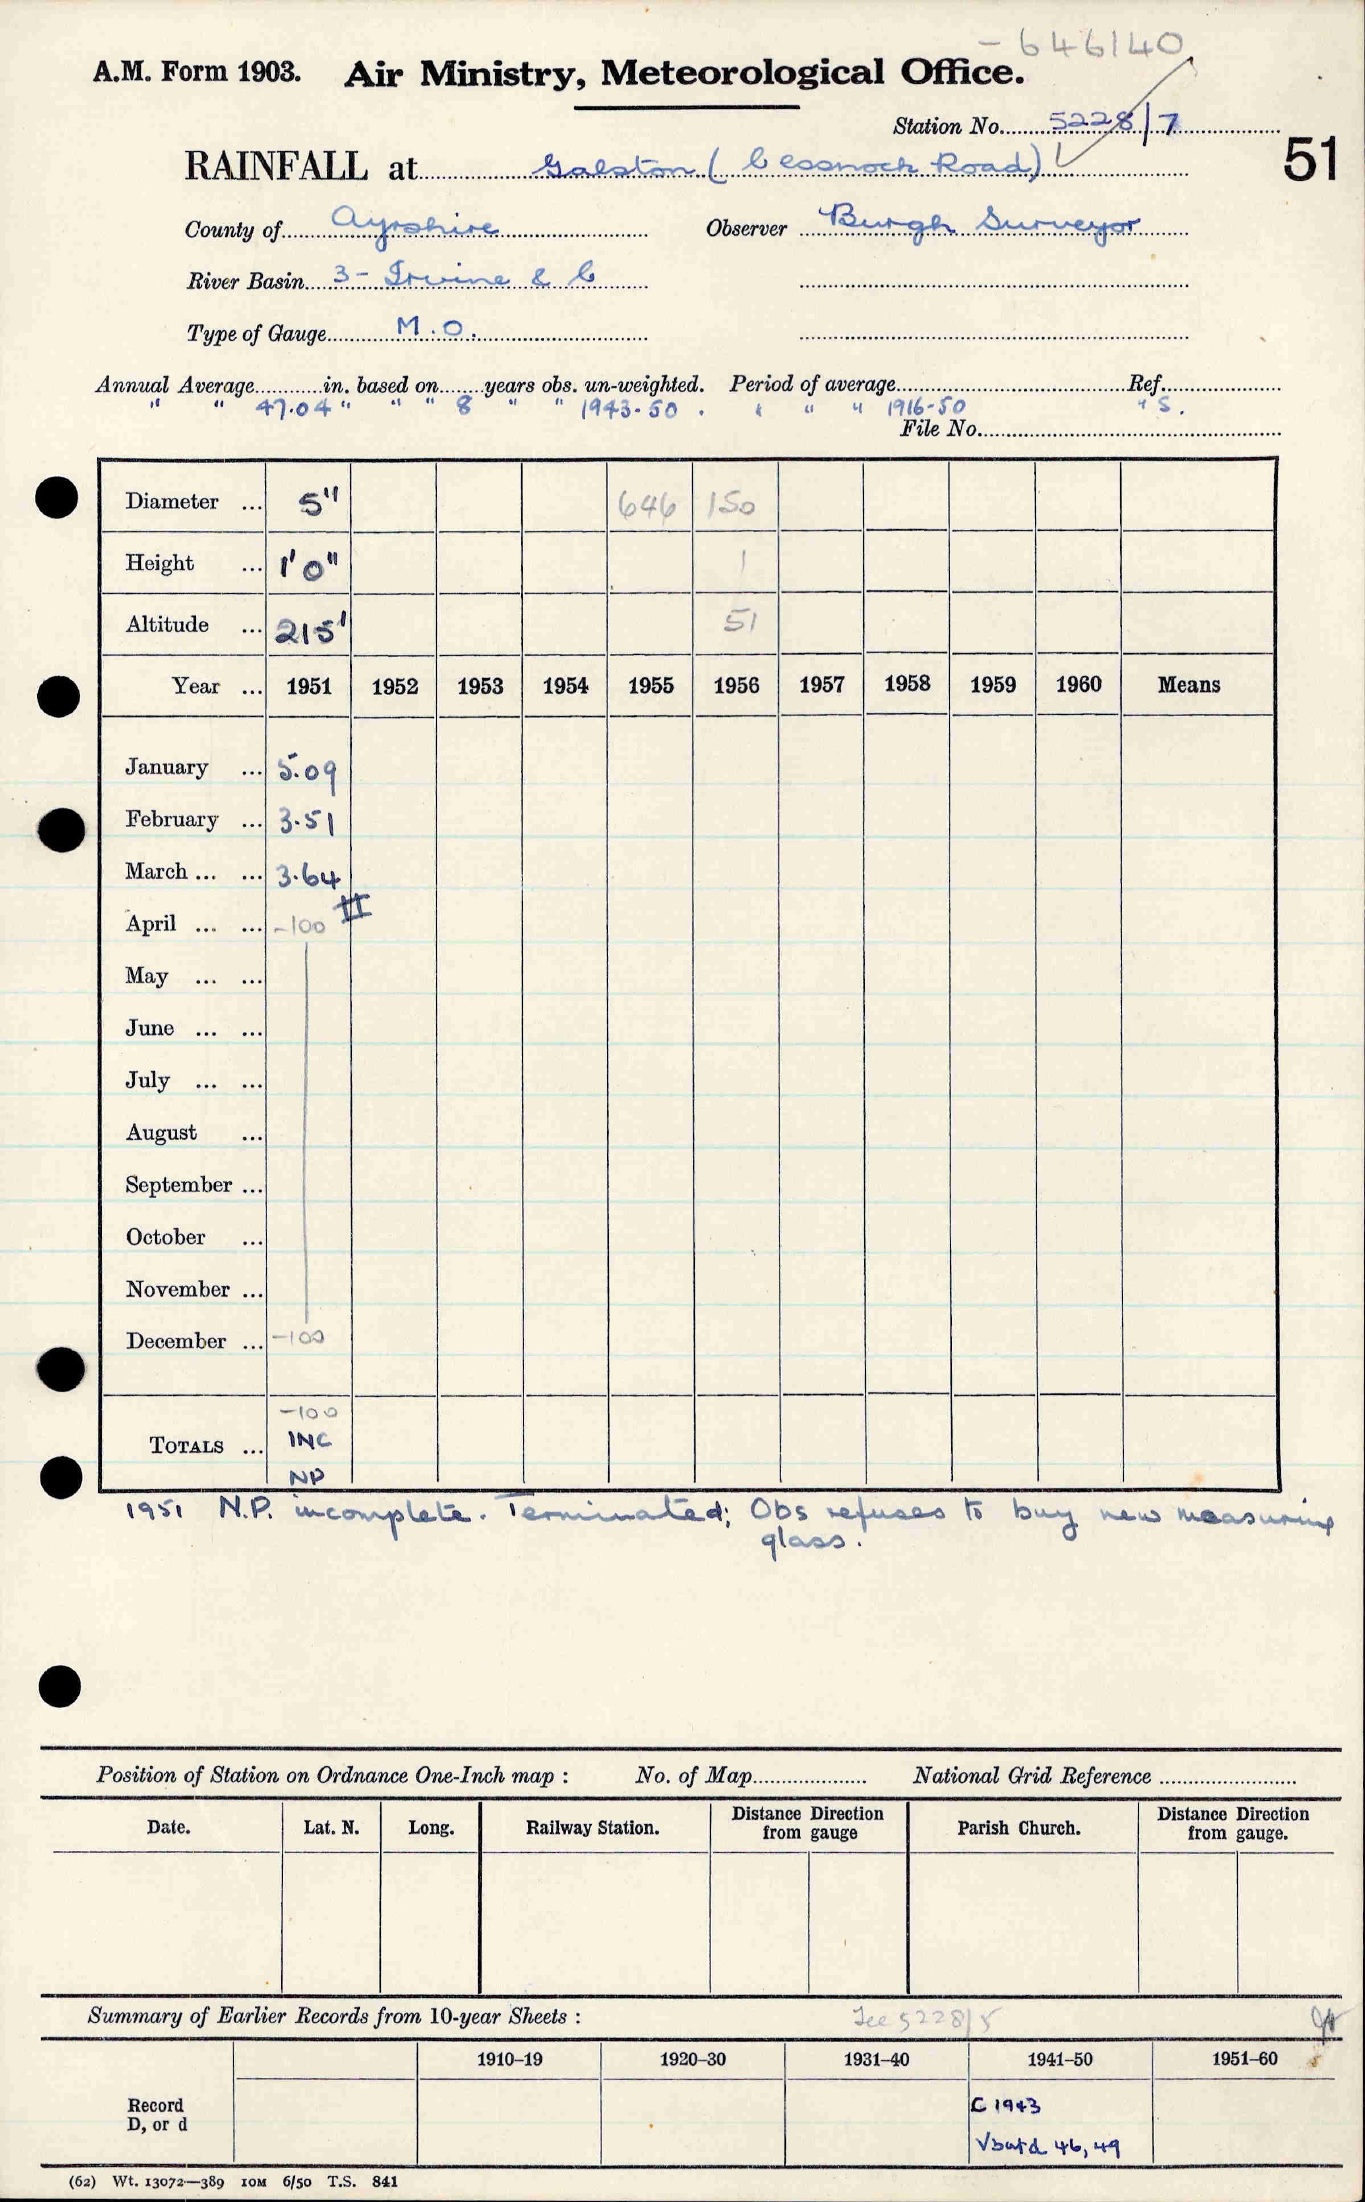 - 646140
A.M. Form 1903. Air Ministry, Meteorological Office.
Station No. 5228/7
51
RAINFALL at Galston (Cessnock Road)
County of Ayrshire Observer Burgh Surveyor
River Basin 3 - Irvine & C
Type of Gauge M.O.
Annual Average in. based on years obs. un-weighted. Period of average Ref.
" " 47.04 " " " 8 " " 1943-50. " " " 1916-50 " S.
File No.
Diameter ... 5" 646 150
Height ... 1'0" 1
Altitude ... 215' 51
Year ... 1951 1952 1953 1954 1955 1956 1957 1958 1959 1960 Means
January ... 5.09
February ... 3.51
March ... ... 3.64
II
April ... ... -100
May ... ...
June ... ...
July ... ...
August ...
September ...
October ...
November ...
December ... -100
-100
TOTALS ... INC
NP
1951 N.P. incomplete. Terminated; Obs refuses to buy new measuring
glass.
Position of Station on Ordnance One-Inch map : No. of Map National Grid Reference
Date. Lat. N. Long. Railway Station. Distance Direction from gauge Parish Church. Distance Direction from gauge.
Summary of Earlier Records from 10-year Sheets : See 5228/5
1910–19 1920–30 1931–40 1941–50 1951–60
Record C 1943
D, or d 46, 49
(62) Wt. 13072—389 10M 6/50 T.S. 841